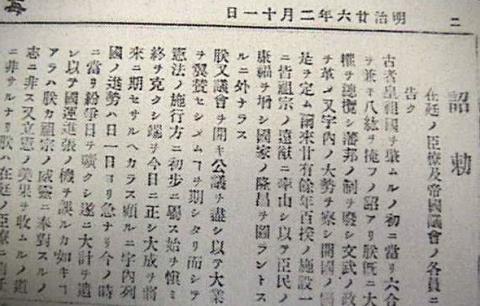 二
明治廿六年二月十一日
詔勅
在廷ノ臣僚及帝國議會ノ各員ニ
告ク
古者皇祖國ヲ肇ムルノ初ニ當リ六合
ヲ兼ネ八紘ヲ掩フノ詔アリ朕既ニ
權ヲ總攬シ藩邦ノ制ヲ廢シ文武ノ政
ヲ革メ又宇內ノ大勢ヲ察シ開國ノ
是ヲ定ム爾來廿有餘年百揆ノ施設一
ニ皆祖宗ノ遺猷ニ率由シ以テ臣民ノ
康福ヲ增シ國家ノ隆昌ヲ圖ラントス
ルニ外ナラス
朕又議會ヲ開キ公議ヲ盡シ以テ大業
ヲ翼賛セシメムコヲ期シタリ而シテ
憲法ノ施行方ニ初步ニ屬ス始ヲ愼ミ
終ヲ克クシ端ヲ今日ニ正シ大成ヲ將
來ニ期セサルヘカラス顧ルニ宇內列
國ノ進勢ハ日一日ヨリ急ナリ今ノ時
ニ當リ紛爭日ヲ曠クシ遂ニ大計ヲ遺
レ以テ國運進張ノ機ヲ誤ルカ如キコ
アラハ朕カ祖宗ノ威靈ニ奉對スルノ
志ニ非ス又立憲ノ美果ヲ收ムルノ道
ニ非サルナリ朕ハ在廷ノ臣僚ニ